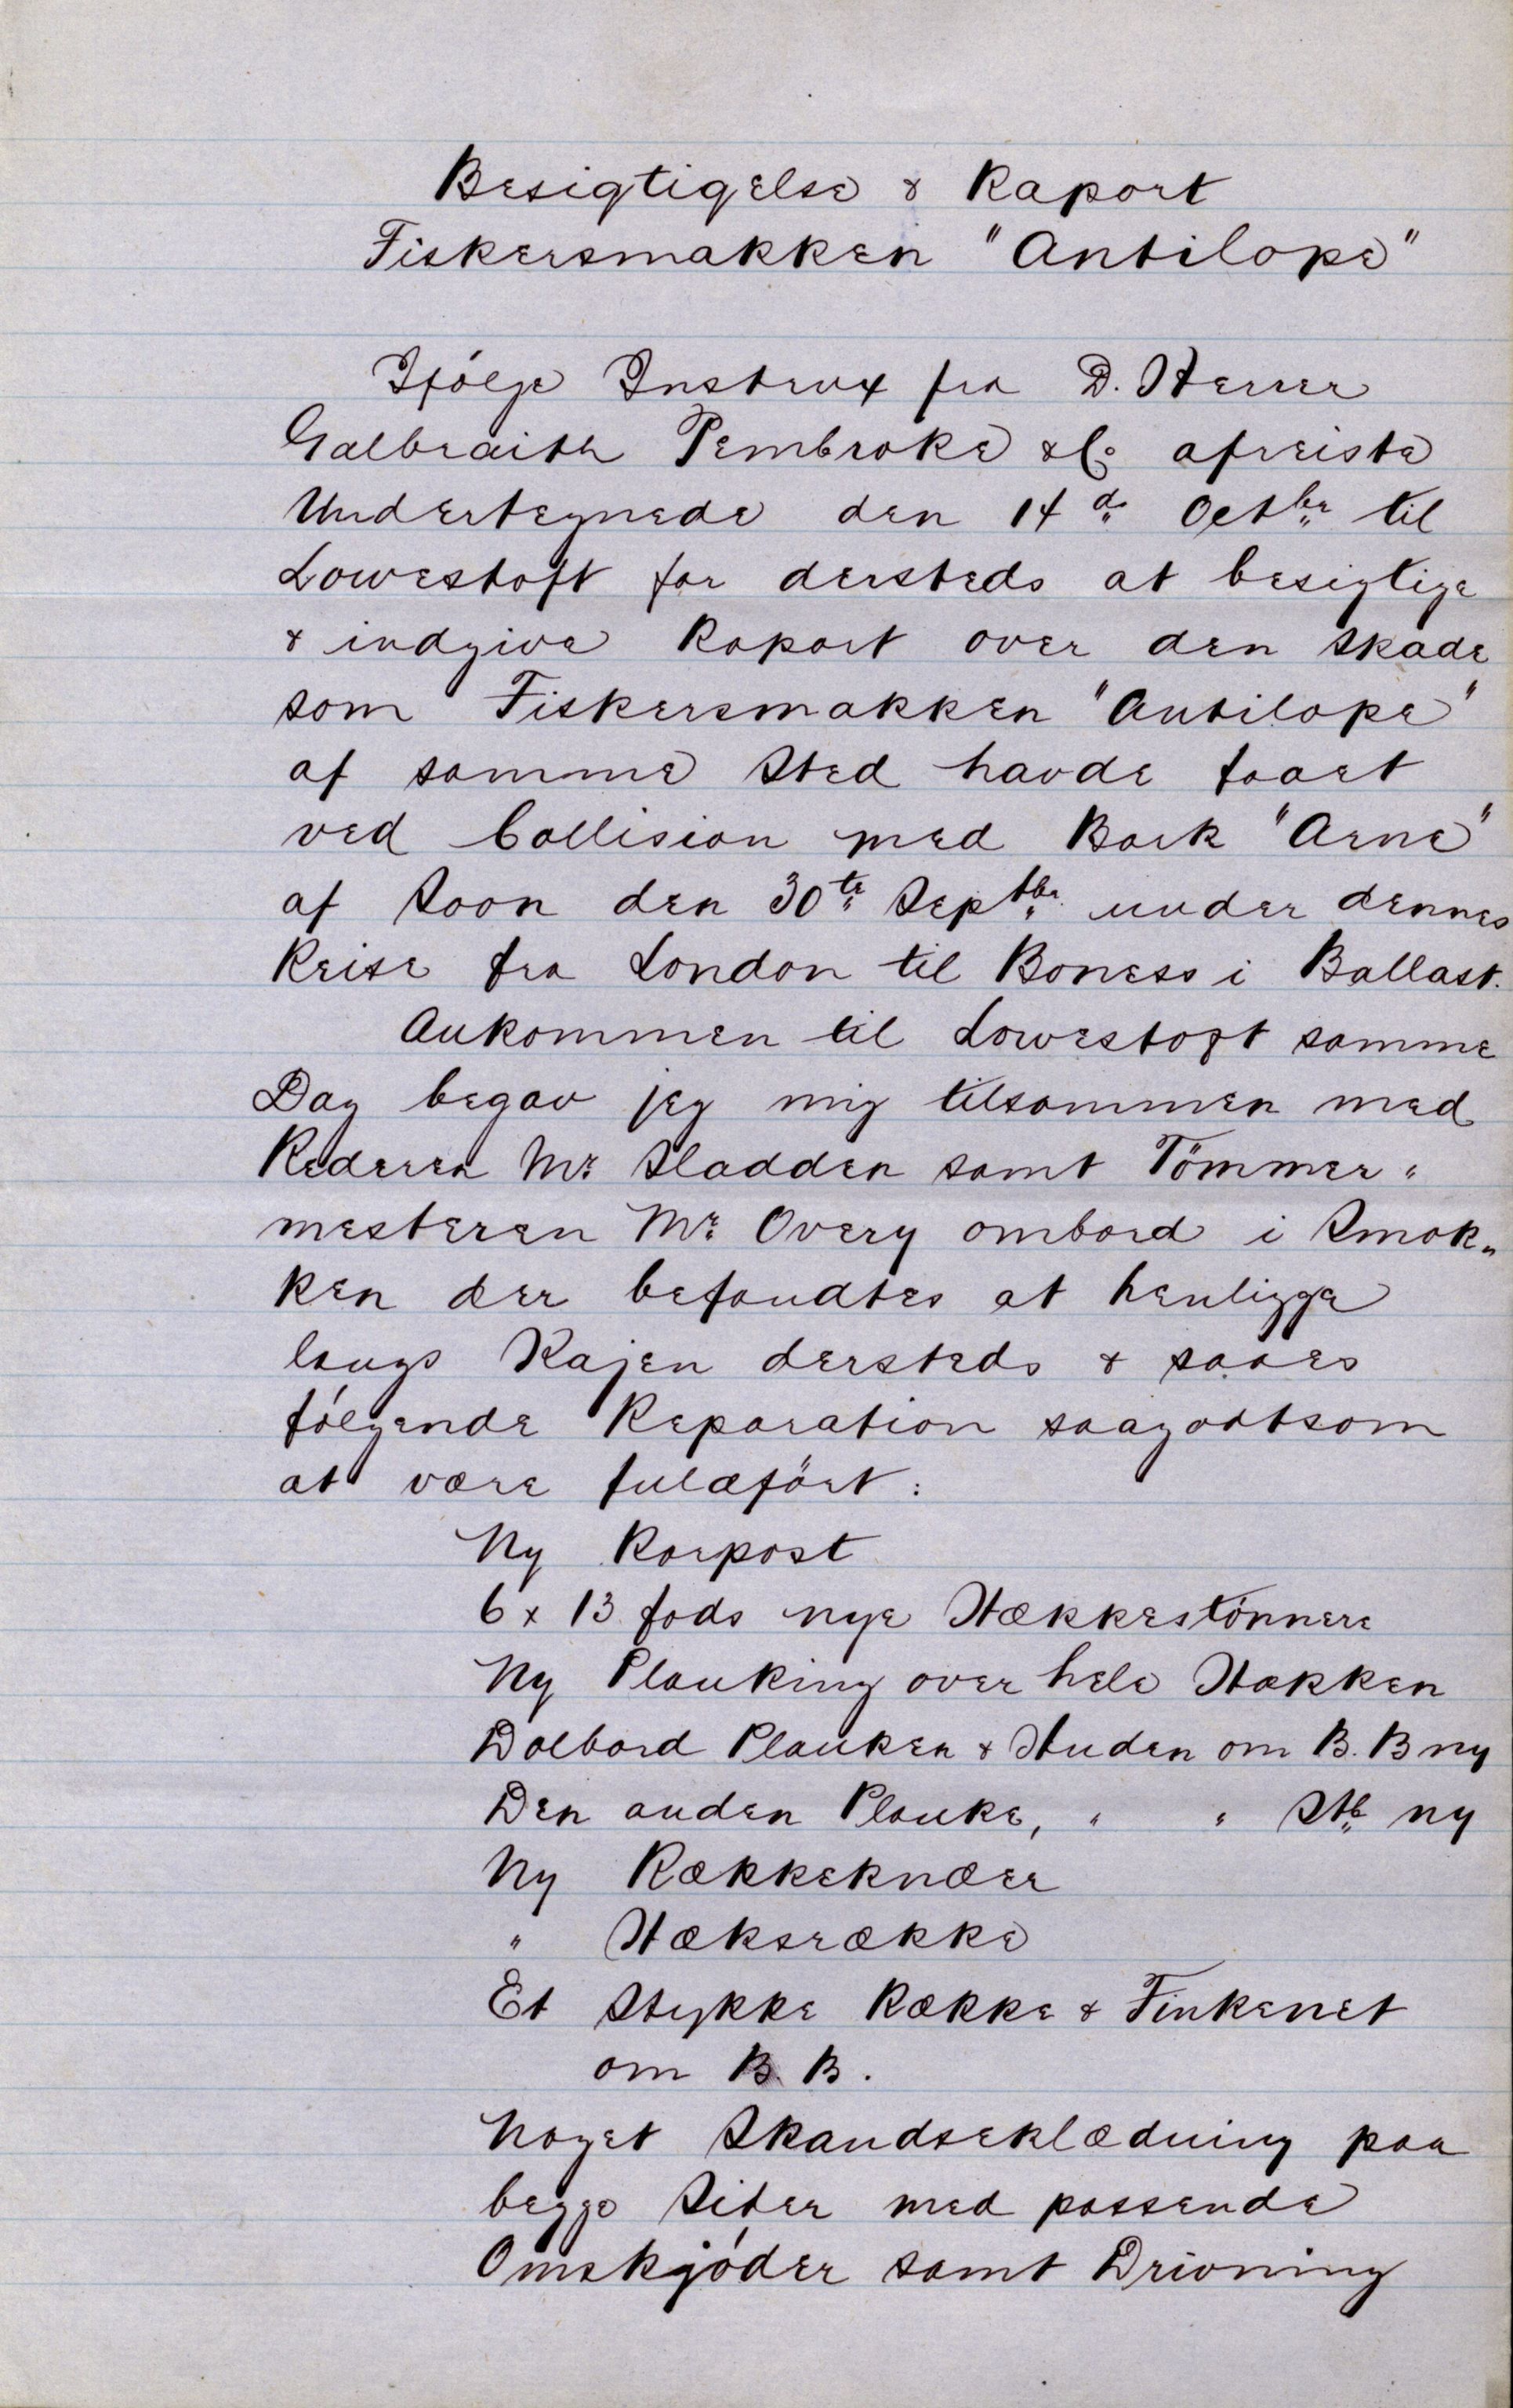 Besigtigelse & Raport
Fiskersmakken "Antilope"
Ifölge Instrux fra D. Herrer
Galbraith Pembroke & Co afreiste
Undertegnede den 14de Octbr til
Lowestoft for dersteds at besigtige
& indgive Raport over den Skade
som Fiskersmakken "Antilope"
af samme Sted havde faaet
ved Collision med Bark "Arne"
af Soon den 30te Septbr under dennes
Reise fra London til Boness i Ballast.
Ankommen til Lowestoft samme
Dag begav jeg mig tilsammen med
Rederen Mr Sladden samt Tömmer„
mesteren Mr Overy ombord i Smak„
ken der befandtes at henligge
langs Kajen dersteds & saaes
fölgende Reparation saagodtsom
at være fuldfört:
Ny Rorpost
6 x 13 fods nye Hækkestönnere
Ny Planking over hele Hækken
Dolbord Planken & Huden om B.B ny
Den anden Planke, " " Stb ny
Ny Rækkeknæer
" Hæksrække
Et Stykke Række & Finkenet
om B.B.
Noget Skandseklædning paa
begge Sider med passende
Omskjöder samt Drivning